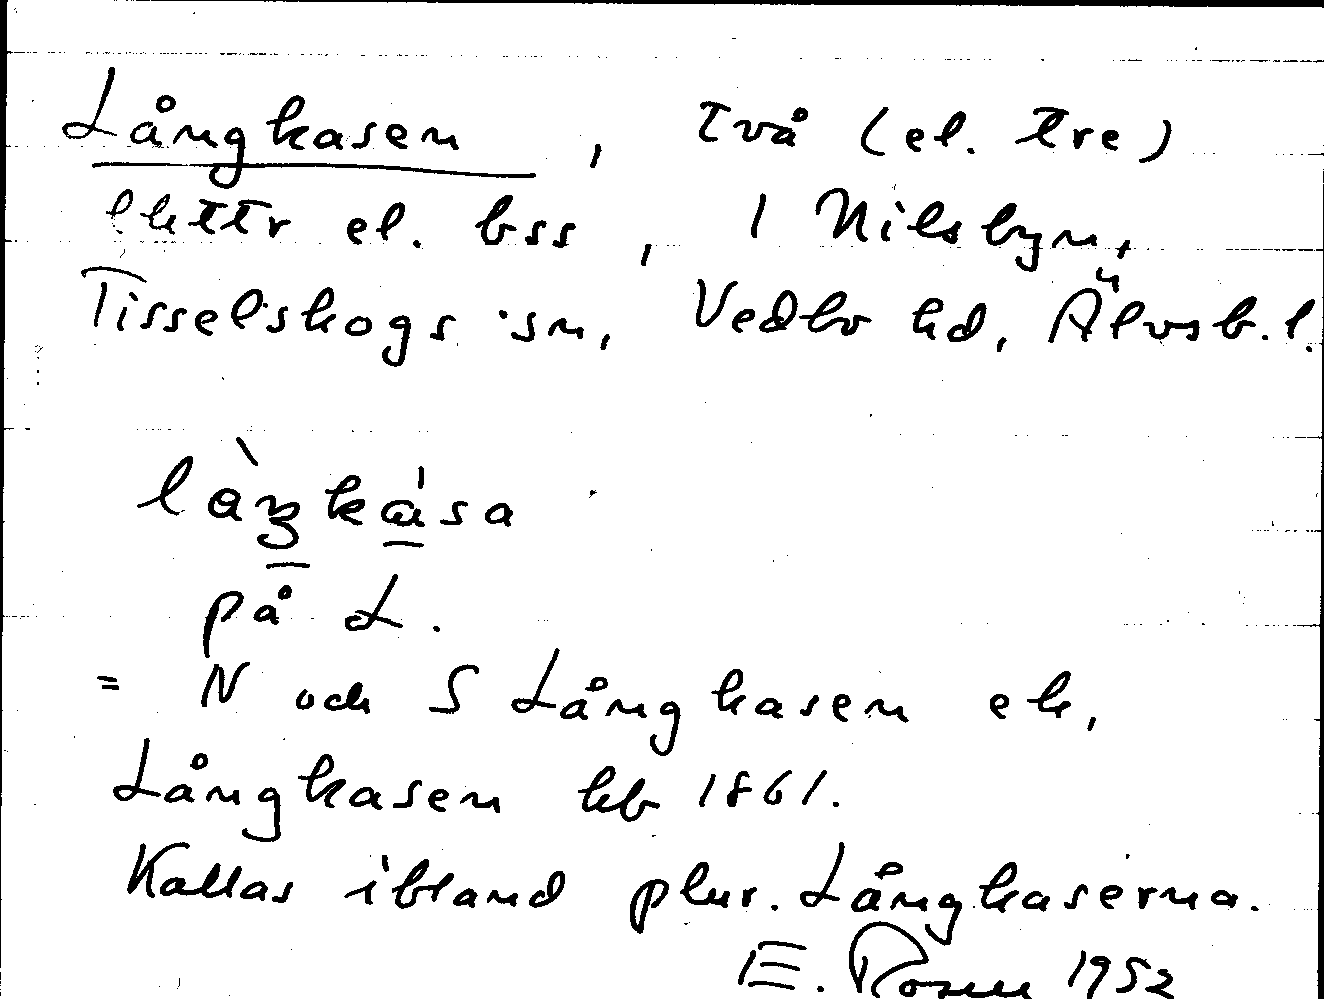 Långkasen, två (el. tre)
lhttr el. bss, i Nilsbyn,
Tisselskogs sn, Vedbo hd, Älvsb. l.
làŋkása
på L.
= N och S Långkasen ek,
Långkasen hb 1861.
Kallas ibland plur. Långkaserna.
E. Rosell 1952